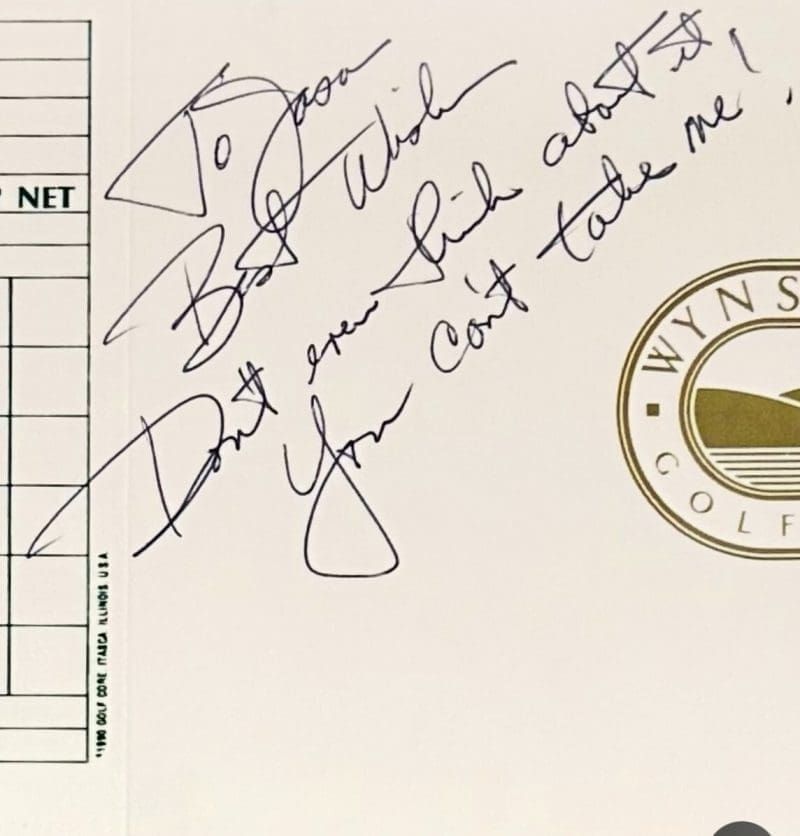 To Jason
Best Wishes
Don't even think about it,
You can't take me!
NET
WYNS
GOLF
1990 GOLF CORE ITASCA ILLINOIS U.S.A